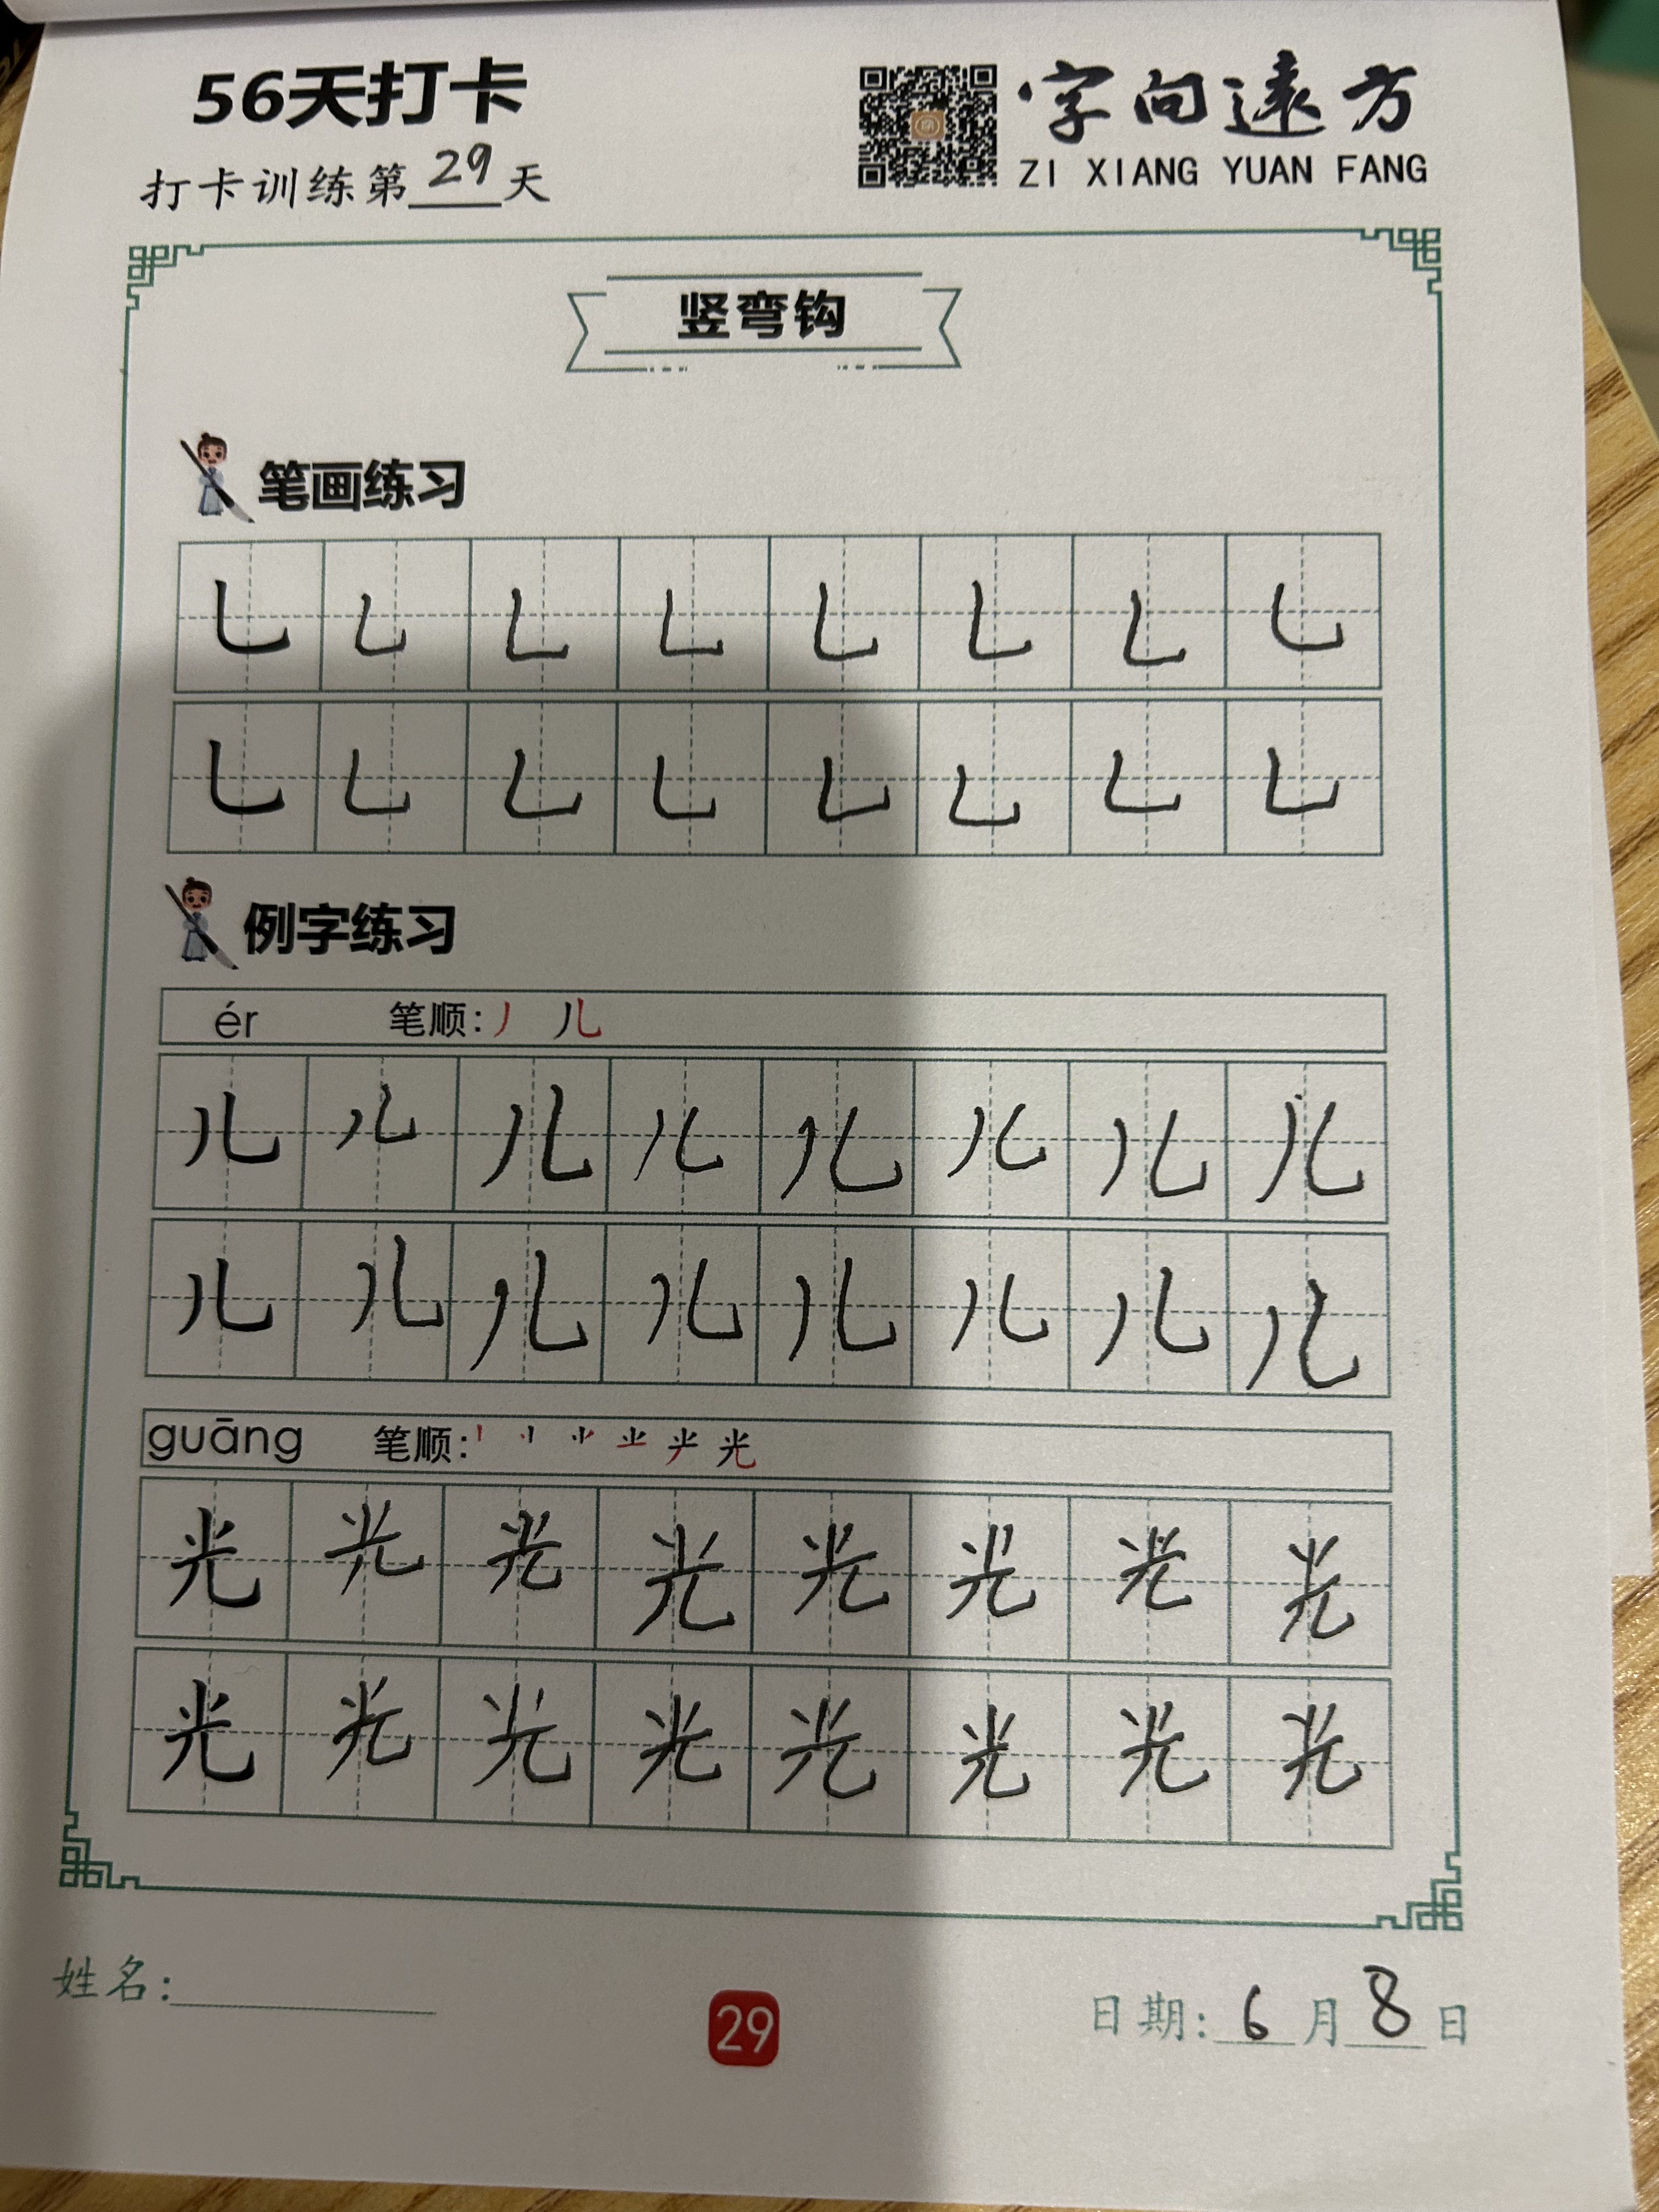 56天打卡
字向遠方
打卡训练第29天
ZI XIANG YUAN FANG
竖弯钩
笔画练习
乚 乚 乚 乚 乚 乚 乚 乚
乚 乚 乚 乚 乚 乚 乚 乚
例字练习
ér 笔顺: 丿 儿
儿 儿 儿 儿 儿 儿 儿 儿
儿 儿 儿 儿 儿 儿 儿 儿
guāng 笔顺: 光
光 光 光 光 光 光 光 光
光 光 光 光 光 光 光 光
姓名:
29
日期: 6月8日